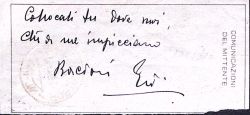 Collocati tu dove vuoi
Che di me impicciano
Bacioni
COMUNICAZIONI
DEL MITTENTE